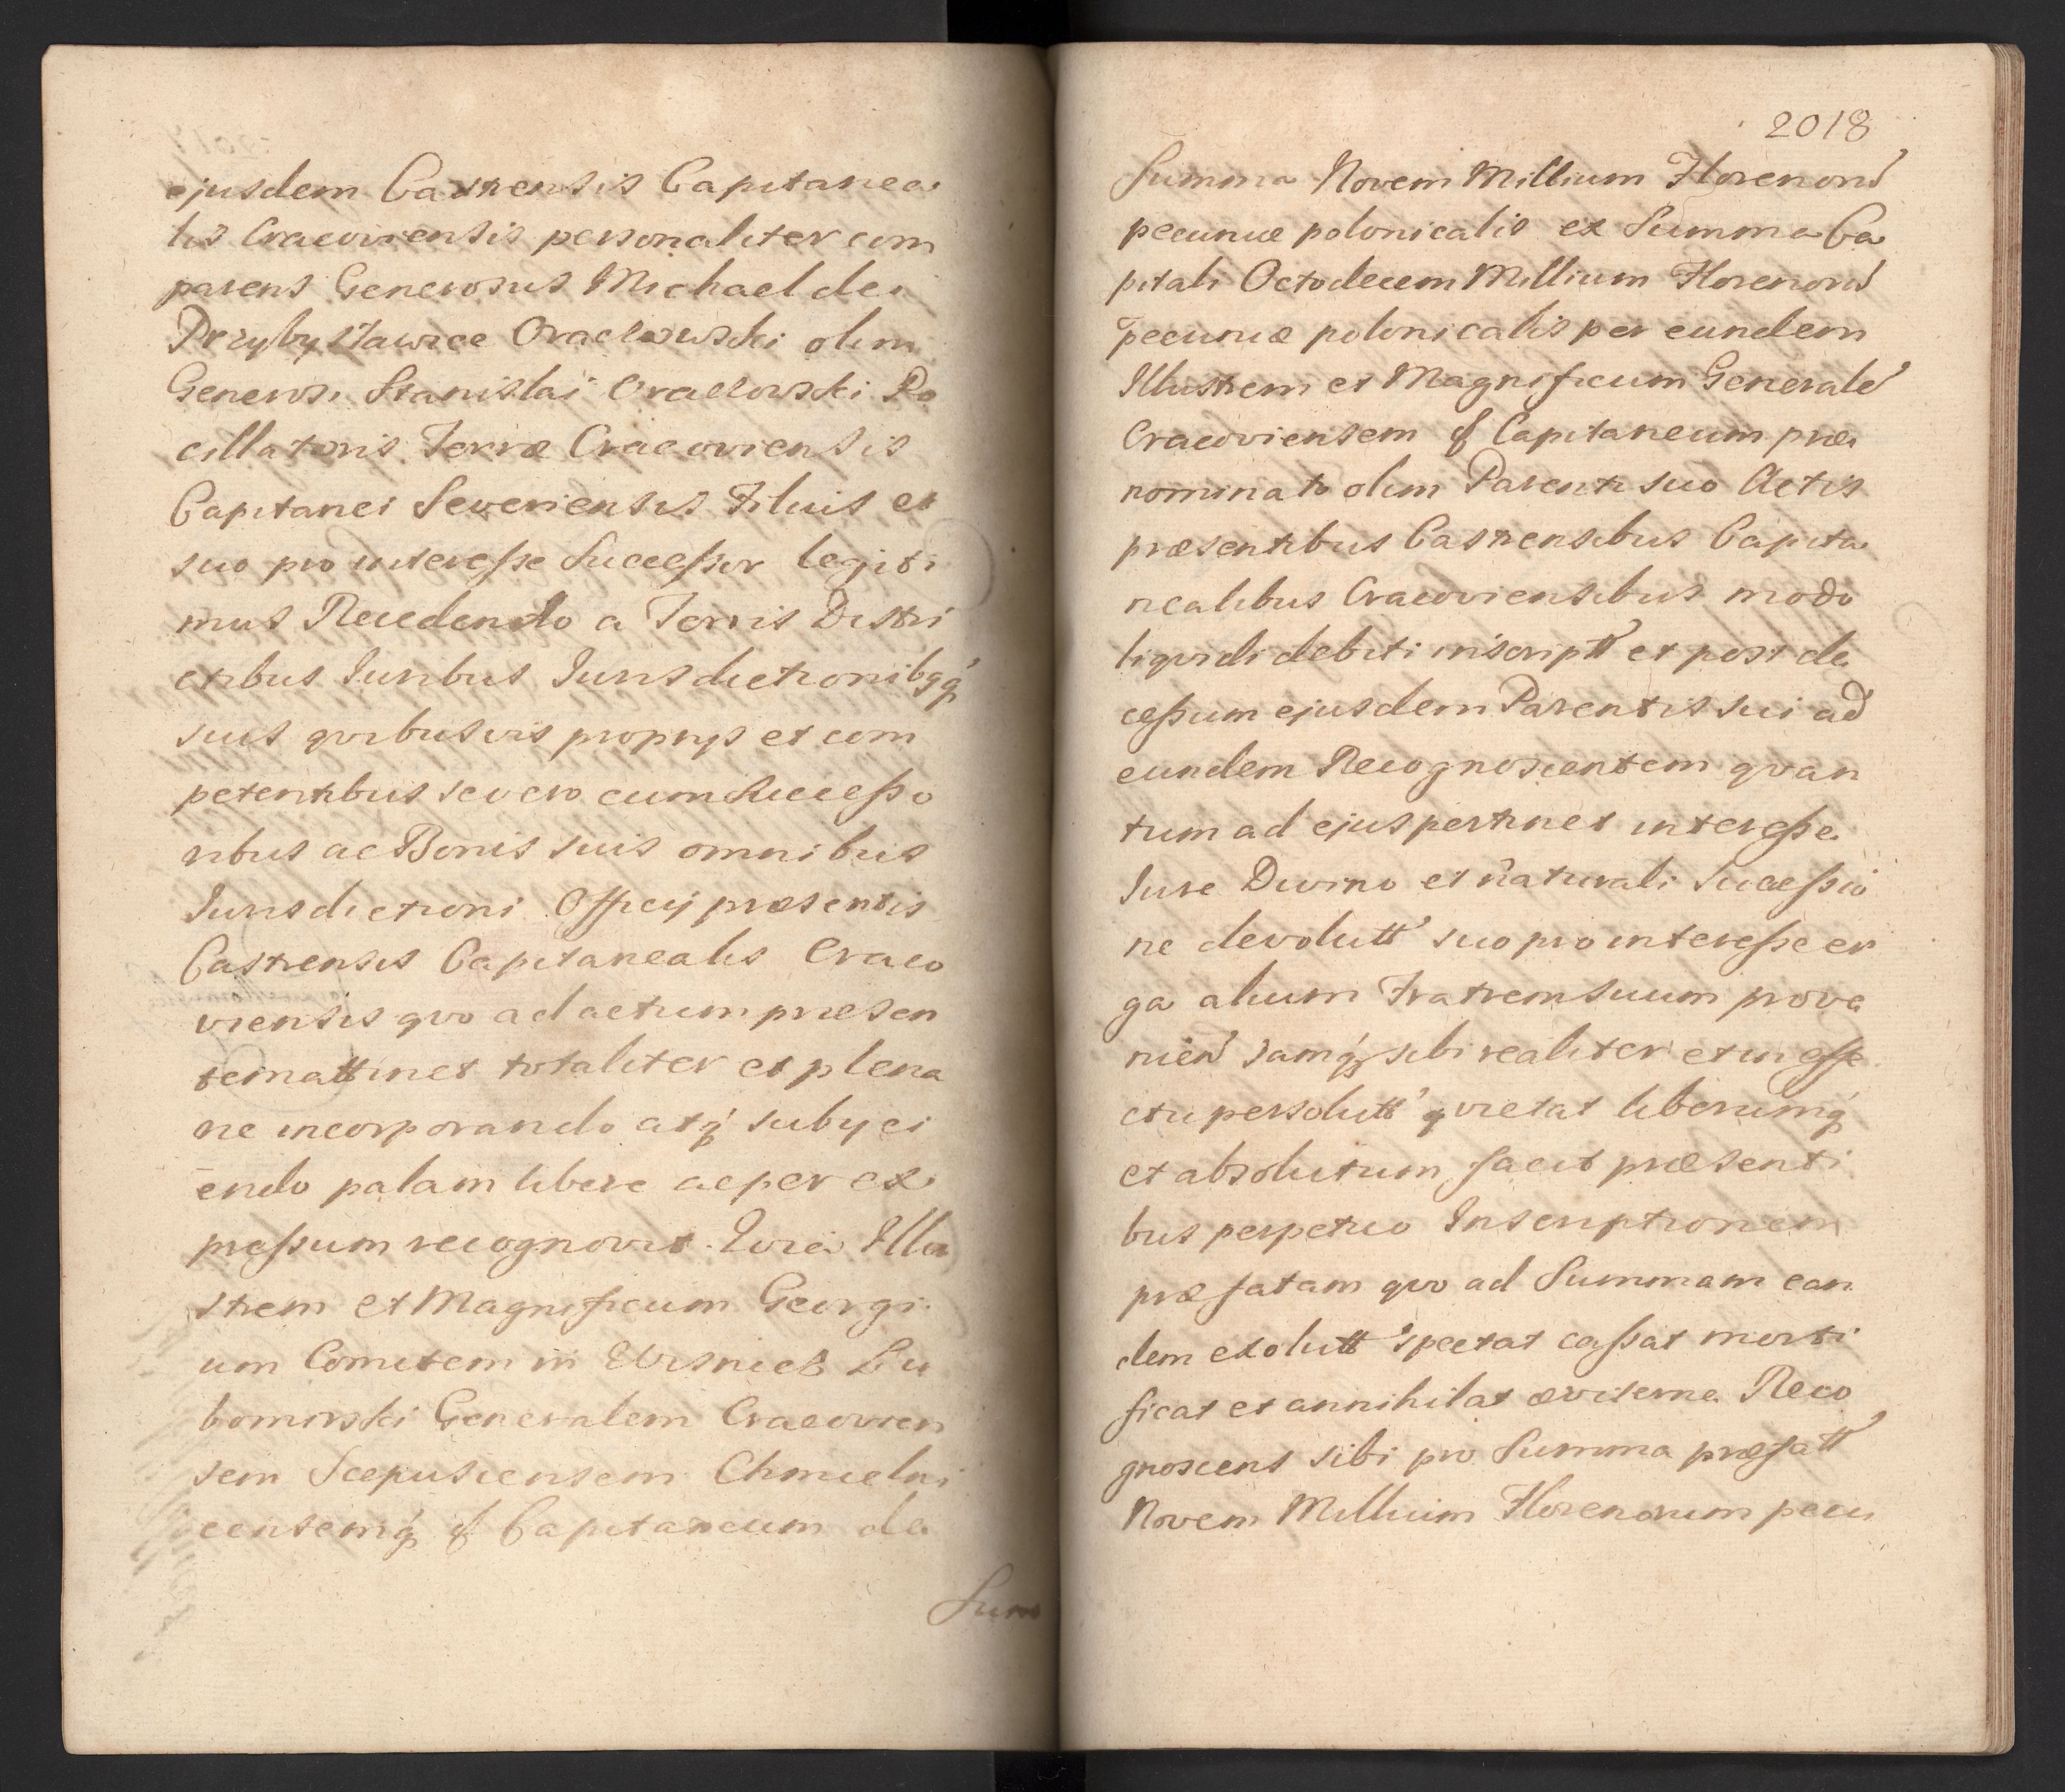 ejusdem Castrensis Capitanea
lis Cracoviensis personaliter com
parens Generosus Michael de
Przybysławice Oraczowski olim
Generosi Stanislai Oraczowski Po
cillatoris Terræ Cracoviensis
Capitanei Severiensis Filius et
suo pro interesse Successor legiti
mus Recedendo a Terris Distri
ctibus Iuribus Iurisdictionibqꝫ
suis qvibusvis proprys et com
petentibus se vero cum Successo
ribus ac Bonis suis omnibus
Iurisdictioni Officij præsentis
Castrensis Capitanealis Craco
viensis qvo ad actum præsen
tem attinet totaliter et plena
ne incorporando atqꝫ subyci
endo palam libere ac per ex
pressum recognovit. Qvia Illu
strem et Magnificum Georgi
um Comitem in Wisnicz Lu
bomirski Generalem Cracovien
sem Scepusiensem Chmielni
censemqꝫ & Capitaneum de
Sum
2018
Summa Novem Millium Florenorũ
pecuniæ polonicalis ex Summa Ca
pitali Octodecem Millium Florenorũ
pecuniæ polonicalis per eundem
Illustrem et Magnificum Generalẽ
Cracoviensem & Capitaneum præ
nominato olim Parenti suo Actis
præsentibus Castrensibus Capita
nealibus Cracoviensibus modo
liqvidi debiti inscriptt et post de
cessum ejusdem Parentis sui ad
eundem Recognoscentem qvan
tum ad ejus pertinet interesse
Iure Divino et naturali Successio
ne devolutt suo pro interesse er
ga alium Fratrem suum prove
nień Iamqꝫ sibi realiter et in effe
ctu persolutt qvietat liberumqꝫ
et absolutum facit præsenti
bus perpetuo Inscriptionem
præfatam qvo ad Summam ean
dem exolutt spectat cassat morti
ficat et annihilat æviterne Reco
gnoscens sibi pro Summa præfatt
Novem Millium Florenorum pecu